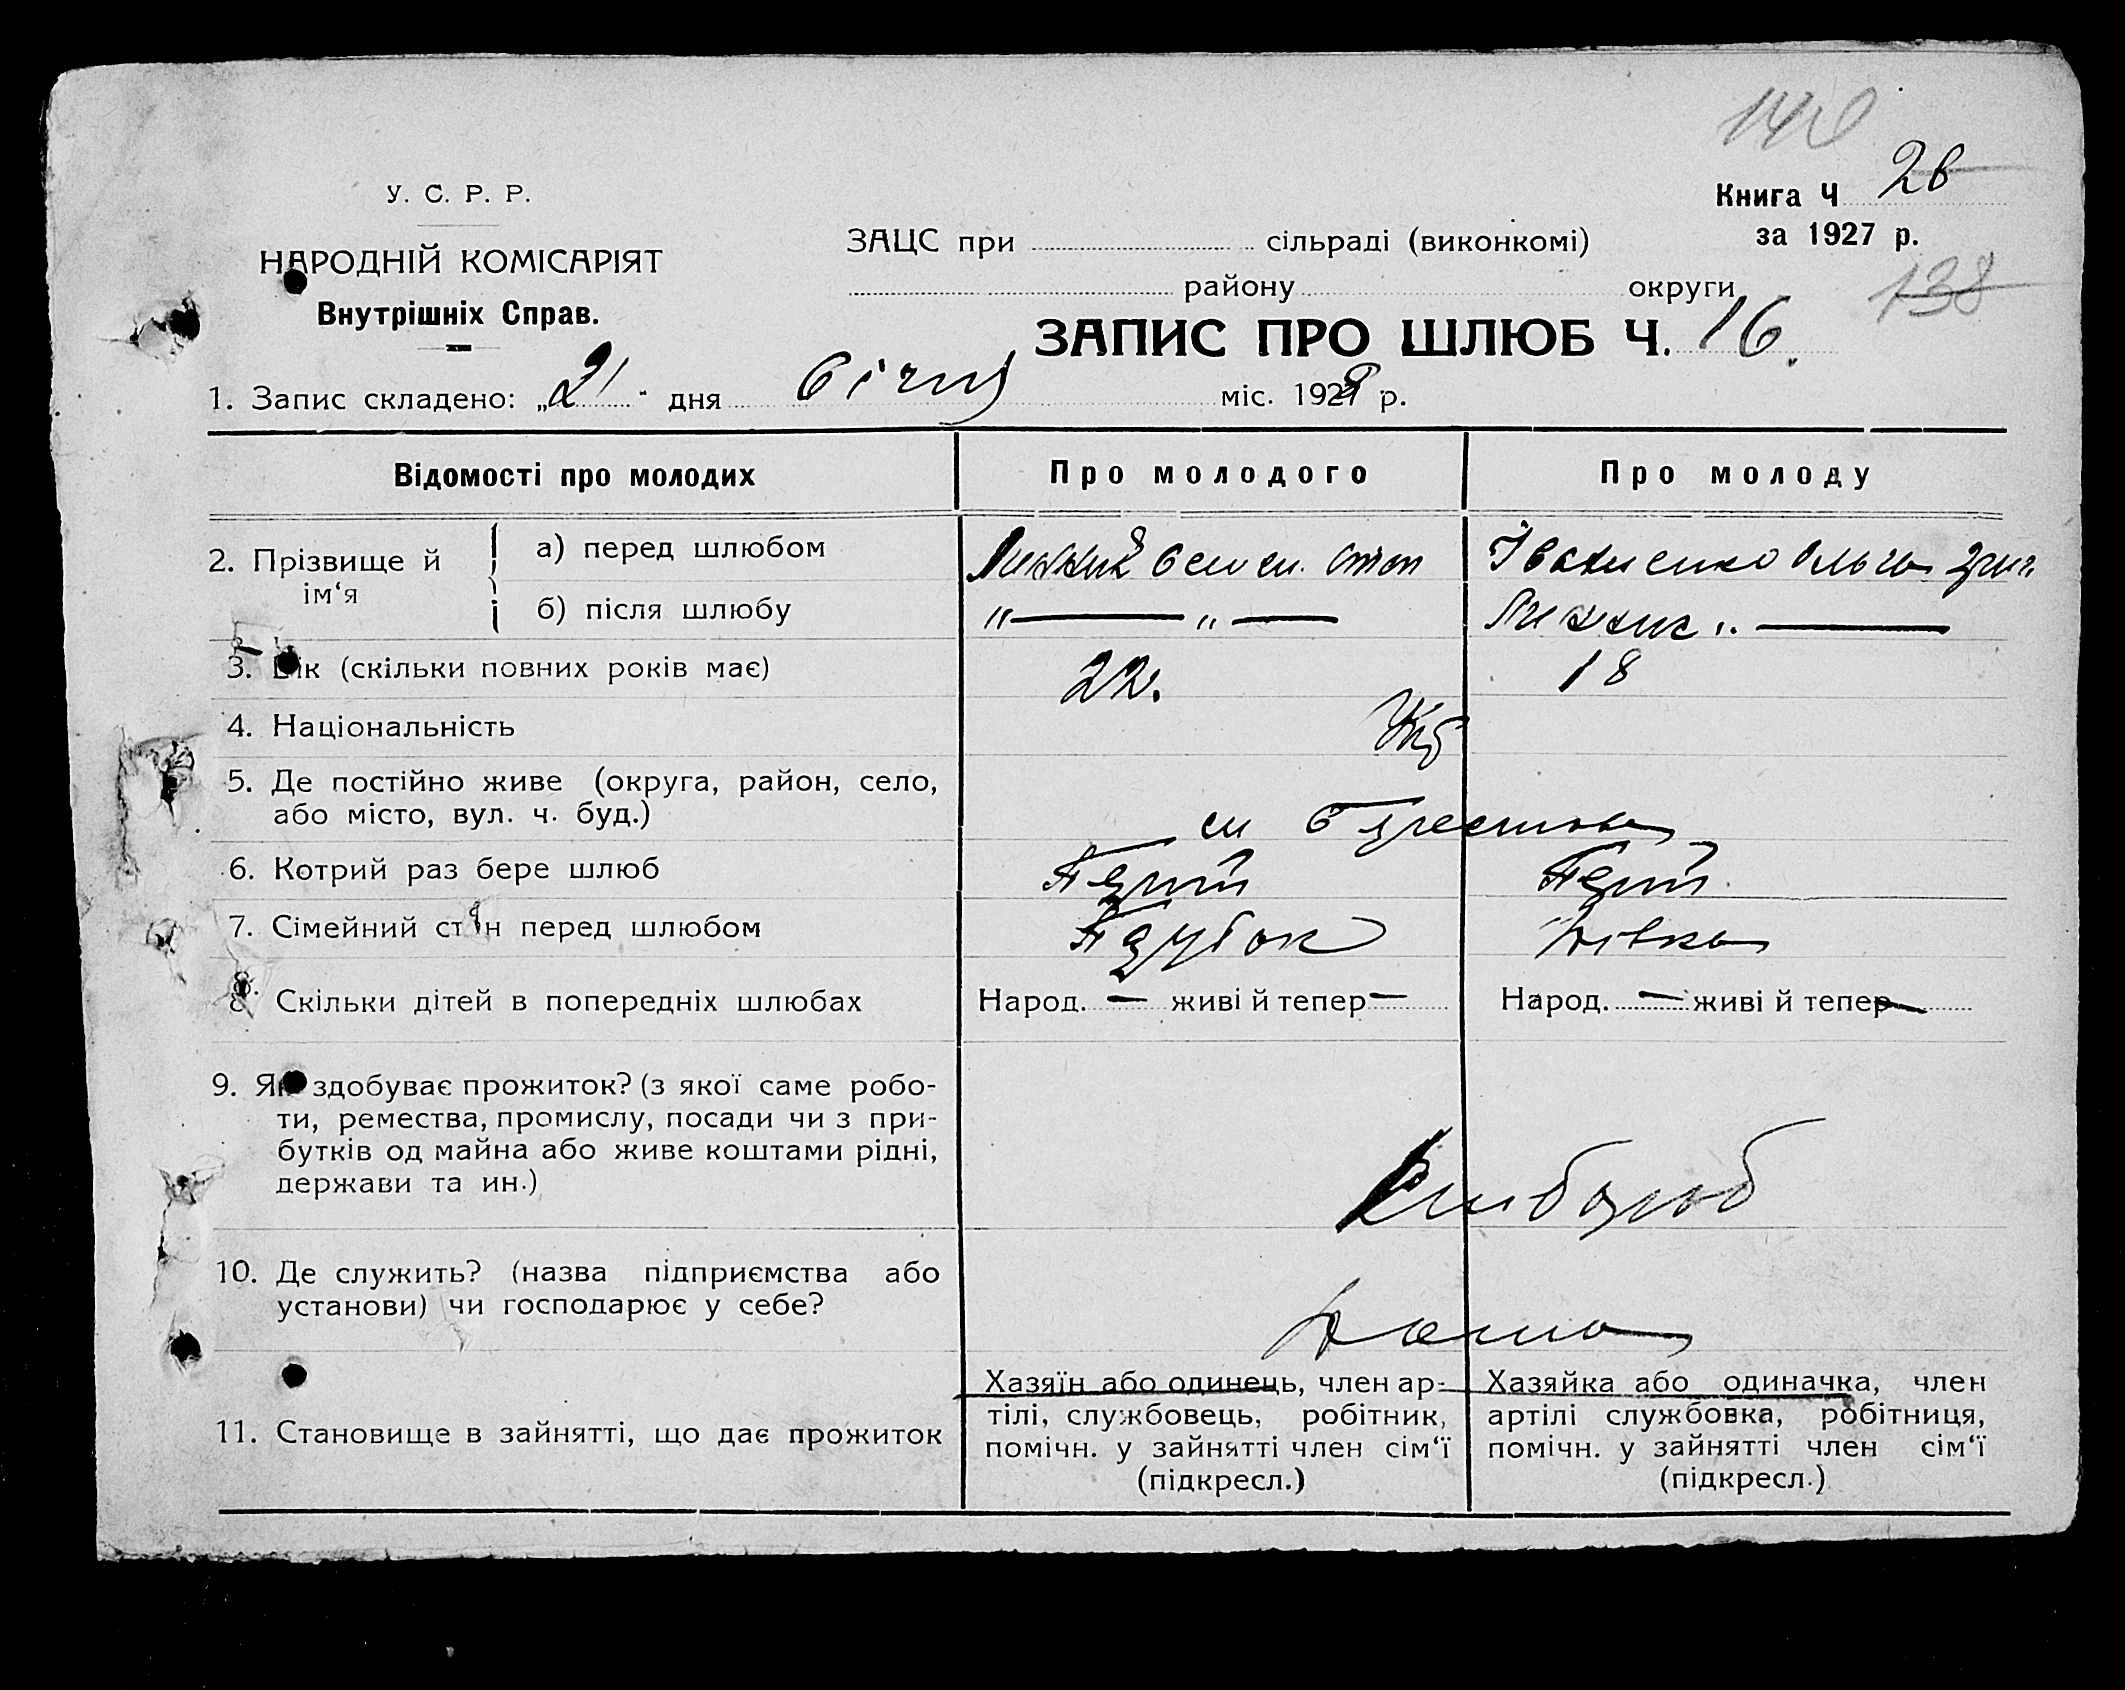 140
У. С. Р. Р.
Книга Ч 26
НАРОДНІЙ КОМІСАРІЯТ
ЗАЦС при сільраді (виконкомі)
за 1927 р.
Внутрішніх Справ.
району округи
138
ЗАПИС ПРО ШЛЮБ Ч. 16.
1. Запис складено: „21" дня Січня міс. 1928 р.
Відомості про молодих
Про молодого
Про молоду
2. Прізвище й ім‘я
а) перед шлюбом
Семен
Ольга Григ
б) після шлюбу
" — " —
" —
3. Вік (скільки повних років має)
22.
18
4. Національність
Укр
5. Де постійно живе (округа, район, село,
або місто, вул. ч. буд.)
6. Котрий раз бере шлюб
Перший
Перший
7. Сімейний стан перед шлюбом
Парубок
Дівка
8. Скільки дітей в попередніх шлюбах
Народ. — живі й тепер —
Народ. — живі й тепер —
9. Як здобуває прожиток? (з якої саме робо-
ти, ремества, промислу, посади чи з при-
бутків од майна або живе коштами рідні,
держави та ин.)
Хлібороб
10. Де служить? (назва підприємства або
установи) чи господарює у себе?
Дома
11. Становище в зайнятті, що дає прожиток
Хазяїн або одинець, член ар-
тілі, службовець, робітник,
помічн. у зайнятті член сім‘ї
(підкресл.)
Хазяйка або одиначка, член
артілі службовка, робітниця,
помічн. у зайнятті член сім‘ї
(підкресл.)